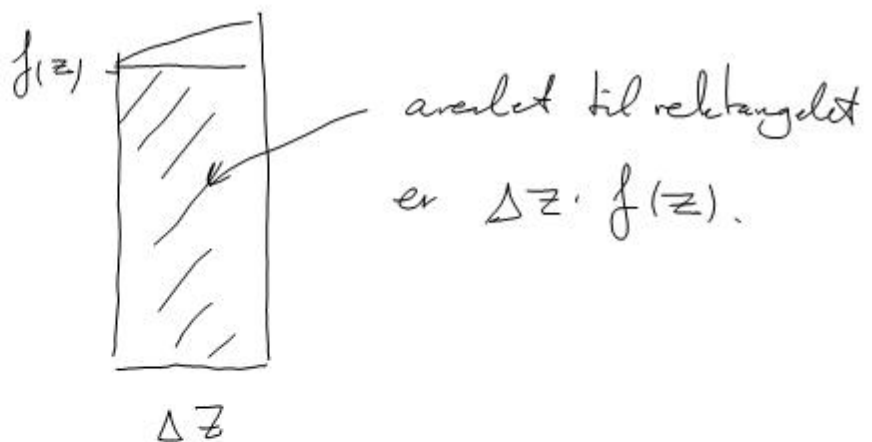 f(z)
arealet til rektangelet
er Δz · f(z).
Δz